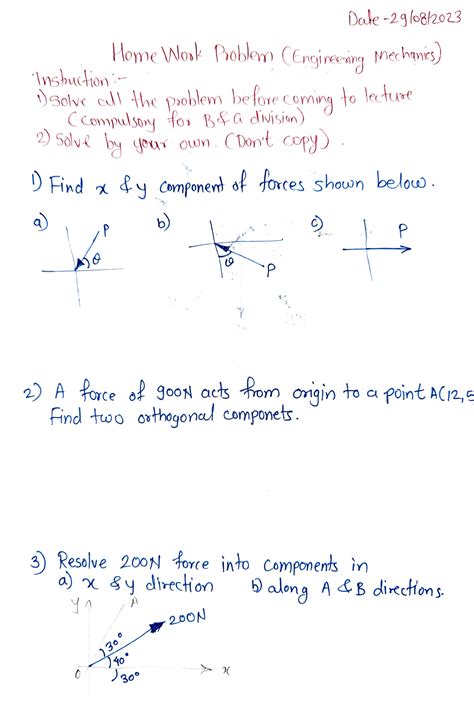 Date -29/08/2023
Home Work Problem (Engineering Mechanics)
Instruction :-
1) Solve all the problem before coming to lecture
(Compulsory for B & G division)
2) Solve by your own. (Don't copy).
1) Find x & y component of forces shown below.
a) b) c)
P P
θ θ P
2) A force of 900N acts from origin to a point A(12,
Find two orthogonal componets.
3) Resolve 200N force into components in
a) x & y direction b) along A & B directions.
y A
200N
30°
40°
O 30° x